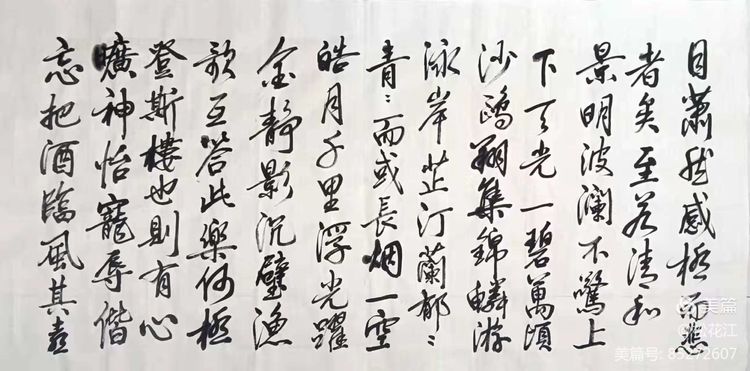 目蕭然感極而悲
者矣至若清和
景明波瀾不驚上
下天光一碧萬頃
沙鷗翔集錦鱗游
泳岸芷汀蘭郁〻
青〻而或長烟一空
皓月千里浮光躍
金靜影沉璧漁
歌互答此樂何極
登斯樓也則有心
曠神怡寵辱偕
忘把酒臨風其喜
美篇
花江
美篇号: 85272607